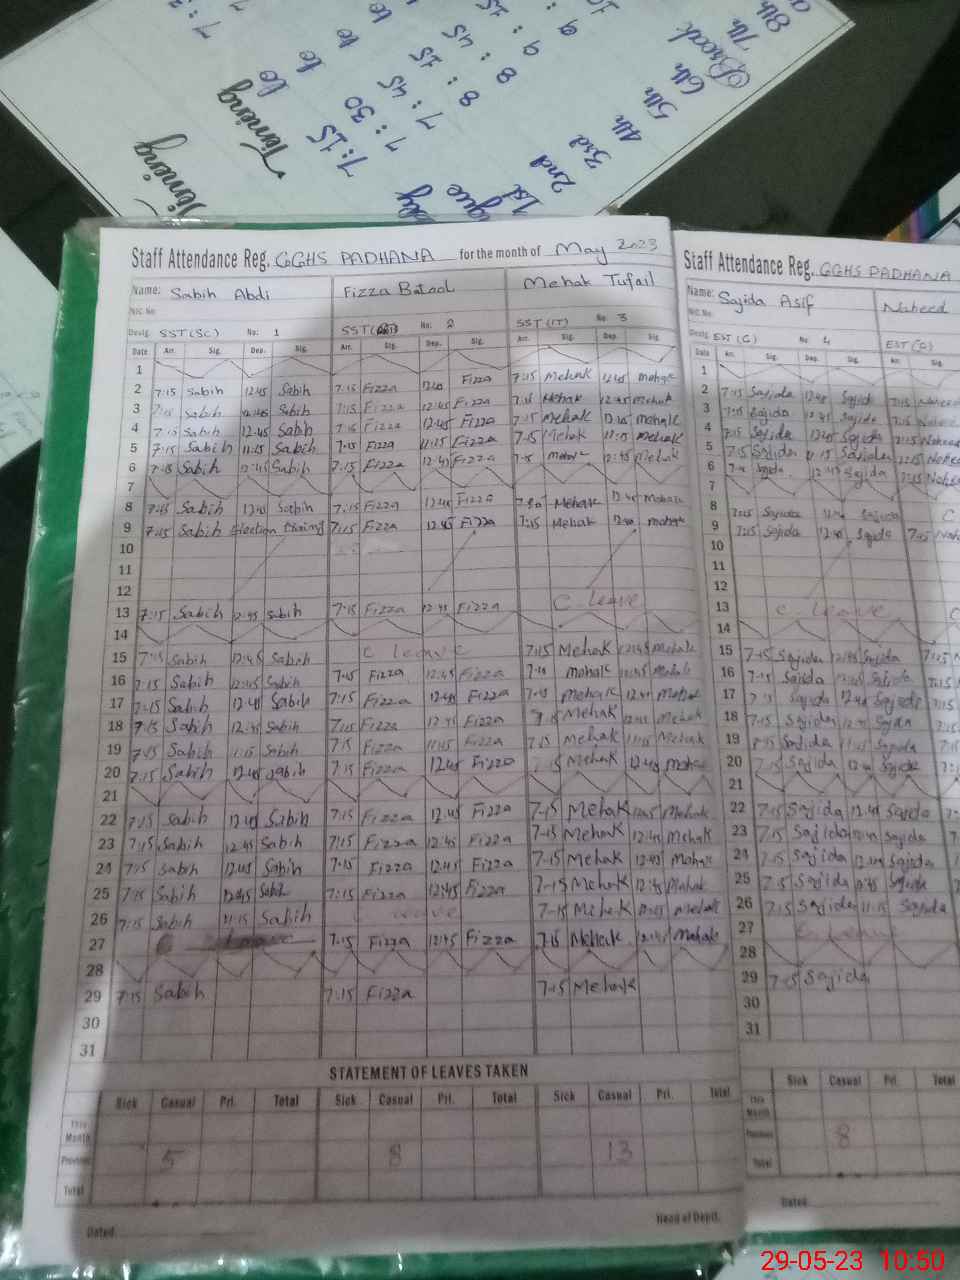 Timing
Timing
7:15 to
7:30 to
7:45
8:15
8:45
1st
2nd
3rd
4th
5th
6th
7th
8th
Staff Attendance Reg. GGHS PADHANA for the month of May 2023
Name: Sabih Abdi Fizza Batool Mehak Tufail
NIC No
Desig. SST(SC) No: 1 SST No: 2 SST(IT) No: 3
Date Arr. Sig. Dep. Sig. Arr. Sig. Dep. Sig. Arr. Sig. Dep. Sig.
1
2 7:15 Sabih 12:45 Sabih 7:15 Fizza 12:45 Fizza 7:15 Mehak 12:45 mehak
3 7:15 Sabih 12:45 Sabih 7:15 Fizza 12:45 Fizza 7:15 Mehak 12:45 mehak
4 7:15 Sabih 12:45 Sabih 7:15 Fizza 12:45 Fizza 7:15 Mehak 12:45 mehak
5 7:15 Sabih 11:15 Sabih 7:15 Fizza 11:15 Fizza 7:15 Mehak 11:15 mehak
6 7:15 Sabih 12:45 Sabih 7:15 Fizza 12:45 Fizza 7:15 mehak 12:45 Mehak
7
8 7:45 Sabih 12:45 Sabih 7:15 Fizza 12:45 Fizza Mehak 12:45 Mehak
9 7:45 Sabih Election training 7:15 Fizza 12:45 Fizza 7:15 Mehak 12:45 mehak
10
11
12
13 7:15 Sabih 12:45 Sabih 7:15 Fizza 12:45 Fizza C. leave
14
15 7:45 Sabih 12:45 Sabih C leave 7:15 Mehak 12:45 Mehak
16 7:15 Sabih 12:45 Sabih 7:45 Fizza 12:45 Fizza 7:15 mehak 12:45 Mehak
17 7:15 Sabih 12:45 Sabih 7:15 Fizza 12:45 Fizza 7:15 mehak 12:45 Mehak
18 7:15 Sabih 12:45 Sabih 7:15 Fizza 12:45 Fizza 7:15 Mehak 12:45 Mehak
19 7:15 Sabih 11:15 Sabih 7:15 Fizza 11:45 Fizza 7:15 Mehak 11:15 Mehak
20 7:15 Sabih 12:45 Sabih 7:15 Fizza 12:45 Fizza 7:15 Mehak 12:45 mehak
21
22 7:15 Sabih 12:45 Sabih 7:15 Fizza 12:45 Fizza 7-15 Mehak 12:45 Mehak
23 7:15 Sabih 12:45 Sabih 7:15 Fizza 12:45 Fizza 7-15 Mehak 12:45 Mehak
24 7:15 Sabih 12:45 Sabih 7:15 Fizza 12:45 Fizza 7-15 Mehak 12:45 Mehak
25 7:15 Sabih 12:45 Sabih 7:15 Fizza 12:45 Fizza 7-15 Mehak 12:45 Mehak
26 7:15 Sabih 11:15 Sabih leave 7-15 Mehak 11:15 Mehak
27 leave 7:15 Fizza 12:45 Fizza 7:15 Mehak 12:45 Mehak
28
29 7:15 Sabih 7:15 Fizza 7-15 Mehak
30
31
STATEMENT OF LEAVES TAKEN
Sick Casual Pri. Total Sick Casual Pri. Total Sick Casual Pri. Total
This Month
Previous 5 8 13
Total
Dated Head of Deptt.
Staff Attendance Reg. GGHS PADHANA
Name: Sajida Asif Naheed
NIC No
Desig. EST(G) No 4 EST(G)
Date Arr. Sig. Dep. Sig. Arr. Sig.
1
2 7:15 Sajida 12:45 Sajida 7:15
3 7:15 Sajida 12:45 Sajida 7:15
4 7:15 Sajida 12:45 Sajida
5 7:15 Sajida 11:15 Sajida
6 Sajida 12:45 Sajida 7:45
7
8 7:15 Sajida 12:45 Sajida C
9 7:15 Sajida 12:45 Sajida 7:45
10
11
12
13 C. leave
14
15 7:45 Sajida 12:45 Sajida
16 7:15 Sajida 12:45 Sajida 7:15
17 Sajida 12:45 Sajida 7:15
18 7:15 Sajida 12:45 Sajida
19 Sajida 11:45 Sajida
20 7:15 Sajida 12:45 Sajida
21
22 7:15 Sajida 12:45 Sajida
23 7:15 Sajida Sajida
24 7:15 Sajida 12:45 Sajida
25 7:15 Sajida 12:45 Sajida
26 7:15 Sajida 11:15 Sajida
27 C. leave
28
29 7:15 Sajida
30
31
Sick Casual Pri. Total
This Month
Previous 8
Total
Dated
29-05-23 10:50